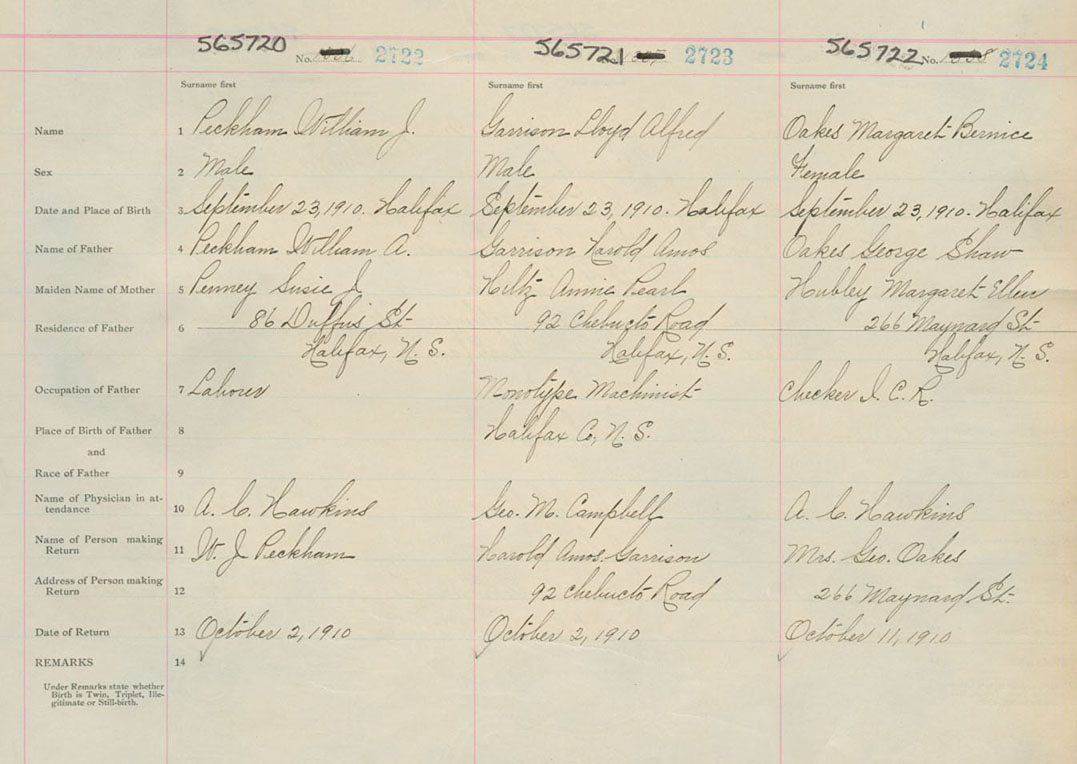 565720 No. 2722 565721 No. 2723 565722 No. 2724
Surname first Surname first Surname first
Name 1 Peckham William J. Garrison Lloyd Alfred Oakes Margaret Bernice
Sex 2 Male Male Female
Date and Place of Birth 3 September 23, 1910. Halifax September 23, 1910. Halifax September 23, 1910. Halifax
Name of Father 4 Peckham William A. Garrison Harold Amos Oakes George Shaw
Maiden Name of Mother 5 Penney Susie J Hiltz Annie Pearl Hubley Margaret Ellen
Residence of Father 6 86 Duffus St 92 Chebucto Road 266 Maynard St
Halifax, N. S. Halifax, N. S. Halifax, N. S.
Occupation of Father 7 Laborer Monotype Machinist Checker I. C. R.
Place of Birth of Father 8 Halifax Co, N. S.
and
Race of Father 9
Name of Physician in at-
tendance 10 A. C. Hawkins Geo. M. Campbell A. C. Hawkins
Name of Person making
Return 11 W. J Peckham Harold Amos Garrison Mrs. Geo. Oakes
Address of Person making
Return 12 92 Chebucto Road 266 Maynard St.
Date of Return 13 October 2, 1910 October 2, 1910 October 11, 1910
REMARKS 14
Under Remarks state whether
Birth is Twin, Triplet, Ille-
gitimate or Still-birth.